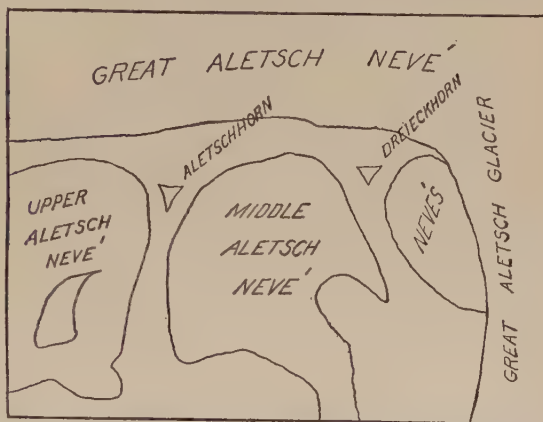 GREAT ALETSCH NEVÉ
ALETSCHHORN
DREIECKHORN
UPPER
ALETSCH
NEVÉ
MIDDLE
ALETSCH
NEVÉ
NEVÉS
GREAT ALETSCH GLACIER